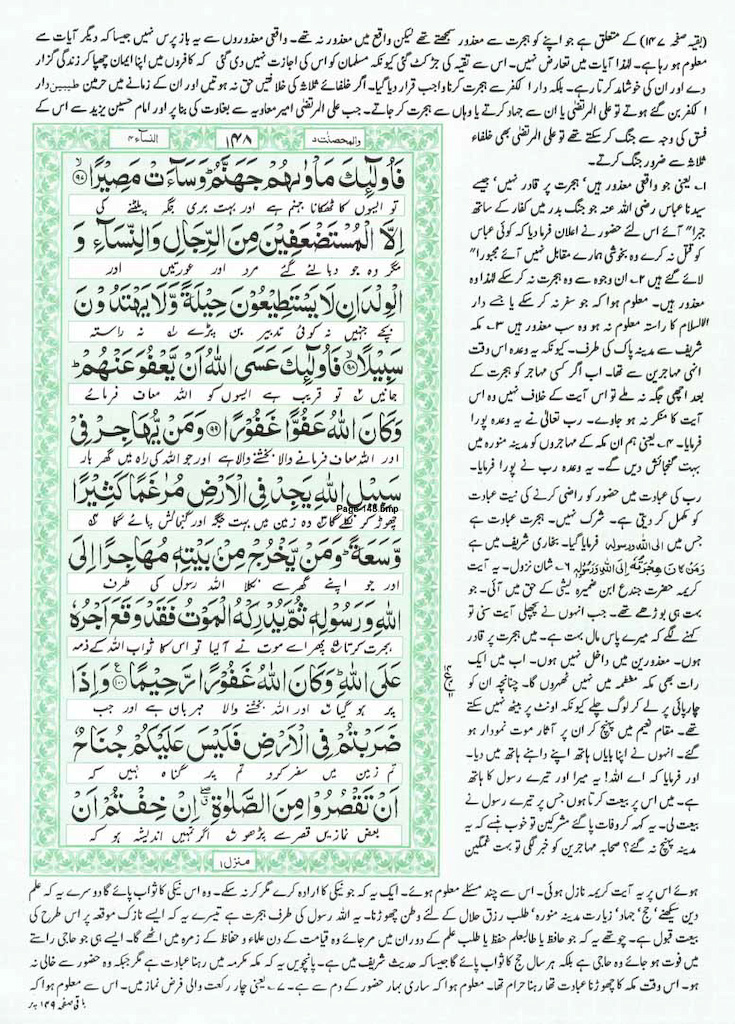 (بقیہ صفحہ ۱۴۷) کے متعلق ہے جو اپنے کو ہجرت سے معذور سمجھتے تھے لیکن واقع میں معذور نہ تھے۔ واقعی معذوروں سے یہ باز پرس نہیں جیسا کہ دیگر آیات سے
معلوم ہو رہا ہے۔ لہذا آیات میں تعارض نہیں۔ اس سے تقیہ کی جڑ کٹ گئی کیونکہ مسلمان کو اس کی اجازت نہیں دی گئی کہ کافروں میں اپنا ایمان چھپا کر زندگی گزار
دے اور ان کی خوشامد کرتا رہے۔ بلکہ دار الکفر سے ہجرت کرنا واجب قرار دیا گیا۔ اگر خلفائے ثلاثہ کی خلافتیں حق نہ ہوتیں اور ان کے زمانے میں حرمین طیبین دار
الکفر بن گئے ہوتے تو علی المرتضیٰ یا ان سے جہاد کرتے یا وہاں سے ہجرت کر جاتے۔ جب علی المرتضیٰ امیر معاویہ سے بغاوت کی بنا پر اور امام حسین یزید سے اس کے
فسق کی وجہ سے جنگ کر سکتے تھے تو علی المرتضیٰ بھی خلفاء
ثلاثہ سے ضرور جنگ کرتے۔
۱۔ یعنی جو واقعی معذور ہیں' ہجرت پر قادر نہیں' جیسے
سیدنا عباس رضی اللہ عنہ جو جنگ بدر میں کفار کے ساتھ
جبرا" آئے اس لئے حضور نے اعلان فرما دیا کہ کوئی عباس
کو قتل نہ کرے وہ بخوشی ہمارے مقابل نہیں آئے مجبورا"
لائے گئے ہیں ۲۔ ان وجوہ سے وہ ہجرت نہ کر سکے لہذا وہ
معذور ہیں۔ معلوم ہوا کہ جو سفر نہ کر سکے یا جسے دار
الاسلام کا راستہ معلوم نہ ہو وہ سب معذور ہیں ۳۔ مکہ
شریف سے مدینہ پاک کی طرف۔ کیونکہ یہ وعدہ اس وقت
انہی مہاجرین سے تھا۔ اب اگر کسی مہاجر کو ہجرت کے
بعد اچھی جگہ نہ ملے تو اس آیت کے خلاف نہیں وہ اس
آیت کا منکر نہ ہو جاوے۔ رب تعالیٰ نے یہ وعدہ پورا
فرمایا۔ ۴۔ یعنی ہم ان مکہ کے مہاجروں کو مدینہ منورہ میں
بہت گنجائش دیں گے۔ یہ وعدہ رب نے پورا فرمایا۔
رب کی عبادت میں حضور کو راضی کرنے کی نیت عبادت
کو مکمل کر دیتی ہے۔ شرک نہیں۔ ہجرت عبادت ہے
جس میں الی اللہ ورسولہ فرمایا گیا۔ بخاری شریف میں ہے
وَمَنْ كَانَ هِجْرَتُهُ إِلَى اللهِ وَرَسُولِهِ ۶۔ شان نزول۔ یہ آیت
کریمہ حضرت جندع ابن ضمیرہ لیثی کے حق میں آئی۔ جو
بہت ہی بوڑھے تھے۔ جب انہوں نے پچھلی آیت سنی تو
کہنے لگے کہ میرے پاس مال بہت ہے۔ میں ہجرت پر قادر
ہوں۔ معذورین میں داخل نہیں ہوں۔ اب میں ایک
رات بھی مکہ معظمہ میں نہیں ٹھہروں گا۔ چنانچہ ان کو
چارپائی پر لے کر لوگ چلے کیونکہ اونٹ پر بیٹھ نہیں سکتے
تھے۔ مقام تنعیم میں پہنچ کر ان پر آثار موت نمودار ہو
گئے۔ انہوں نے اپنا بایاں ہاتھ اپنے داہنے ہاتھ میں دیا۔
اور فرمایا کہ اے اللہ! یہ میرا اور تیرے رسول کا ہاتھ
ہے۔ میں اس پر بیعت کرتا ہوں جس پر تیرے رسول نے
بیعت لی۔ یہ کہہ کر وفات پا گئے مشرکین تو خوب ہنسے کہ یہ
مدینہ پہنچ نہ گئے؟ صحابہ مہاجرین کو خبر لگی تو بہت غمگین
والمحصنٰت ۵ ۱۴۸ النسآء ۴
فَاُولٰٓئِكَ مَاْوٰىهُمْ جَهَنَّمُ وَسَآءَتْ مَصِيْرًا ۙ﴿۹۷﴾
تو ایسوں کا ٹھکانا جہنم ہے اور بہت بری جگہ پلٹنے کی
اِلَّا الْمُسْتَضْعَفِيْنَ مِنَ الرِّجَالِ وَالنِّسَآءِ وَ
مگر وہ جو دبا لئے گئے مرد اور عورتیں اور
الْوِلْدَانِ لَا يَسْتَطِيْعُوْنَ حِيْلَةً وَّلَا يَهْتَدُوْنَ
بچے جنہیں نہ کوئی تدبیر بن پڑے نہ راستہ
سَبِيْلًا ۙ﴿۹۸﴾ فَاُولٰٓئِكَ عَسَى اللّٰهُ اَنْ يَّعْفُوَ عَنْهُمْ ؕ
جانیں تو قریب ہے ایسوں کو اللہ معاف فرمائے
وَكَانَ اللّٰهُ عَفُوًّا غَفُوْرًا ﴿۹۹﴾ وَمَنْ يُّهَاجِرْ فِىْ
اور اللہ معاف فرمانے والا بخشنے والا ہے اور جو اللہ کی راہ میں گھر بار
سَبِيْلِ اللّٰهِ يَجِدْ فِى الْاَرْضِ مُرٰغَمًا كَثِيْرًا
چھوڑ کر نکلے گا وہ زمین میں بہت جگہ اور گنجائش پائے گا
Page 148.bmp
وَّسَعَةً ؕ وَمَنْ يَّخْرُجْ مِنْۢ بَيْتِهٖ مُهَاجِرًا اِلَى
اور جو اپنے گھر سے نکلا اللہ رسول کی طرف
اللّٰهِ وَرَسُوْلِهٖ ثُمَّ يُدْرِكْهُ الْمَوْتُ فَقَدْ وَقَعَ اَجْرُهٗ
ہجرت کرتا پھر اسے موت نے آ لیا تو اس کا ثواب اللہ کے ذمہ
عَلَى اللّٰهِ ؕ وَكَانَ اللّٰهُ غَفُوْرًا رَّحِيْمًا ﴿۱۰۰﴾ وَاِذَا
پر ہو گیا اور اللہ بخشنے والا مہربان ہے اور جب
ضَرَبْتُمْ فِى الْاَرْضِ فَلَيْسَ عَلَيْكُمْ جُنَاحٌ
تم زمین میں سفر کرو تم پر گناہ نہیں کہ
اَنْ تَقْصُرُوْا مِنَ الصَّلٰوةِ ۖ اِنْ خِفْتُمْ اَنْ
بعض نمازیں قصر سے پڑھو اگر تمہیں اندیشہ ہو کہ
منزل ۱
ہوئے اس پر یہ آیت کریمہ نازل ہوئی۔ اس سے چند مسئلے معلوم ہوئے۔ ایک یہ کہ جو نیکی کا ارادہ کرے مگر کر نہ سکے۔ وہ اس نیکی کا ثواب پائے گا دوسرے یہ کہ علم
دین سیکھنے' حج' جہاد' زیارت مدینہ منورہ' طلب رزق حلال کے لئے وطن چھوڑنا۔ یہ اللہ رسول کی طرف ہجرت ہے تیسرے یہ کہ ایسے نازک موقعہ پر اس طرح کی
بیعت قبول ہے۔ چوتھے یہ کہ جو حافظ یا طالبعلم حفظ یا طلب علم کے دوران میں مر جائے وہ قیامت کے دن علماء و حفاظ کے زمرہ میں اٹھے گا۔ ایسے ہی جو حاجی راستے
میں فوت ہو جائے وہ حاجی ہے بلکہ ہر سال حج کا ثواب پائے گا جیسا کہ حدیث شریف میں ہے۔ پانچویں یہ کہ مکہ مکرمہ میں رہنا عبادت ہے مگر جبکہ وہ حضور سے خالی نہ
ہو۔ اس وقت مکہ کا چھوڑنا عبادت تھا رہنا حرام تھا۔ معلوم ہوا کہ ساری بہار حضور کے دم سے ہے۔ ۷۔ یعنی چار رکعت والی فرض نماز میں۔ اس سے معلوم ہوا کہ
باقی صفحہ ۱۴۹ پر